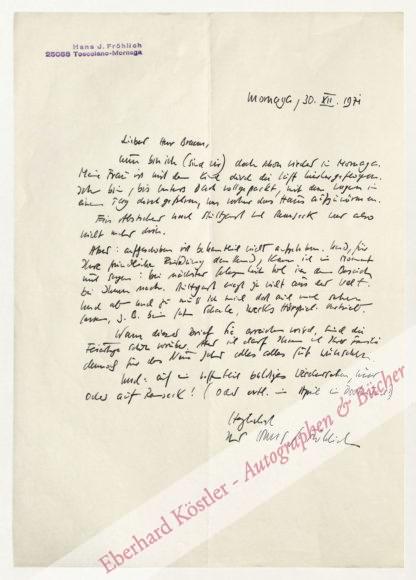 Hans J. Fröhlich
25088 Toscolano-Mornaga
Mornaga, 30. XII. 1971
Lieber Herr Braun,
nun bin ich (sind wir) doch schon wieder in Mornaga.
Meine Frau ist mit dem Kind durch die Luft
Ich bin, bis unters Dach vollgepackt, mit dem Wagen in
einem Tag durchgefahren, um vorher das Haus aufzuwärmen.
Ein Abstecher nach Stuttgart und Remseck war also
nicht mehr drin.
Aber: aufgeschoben ist bekanntlich nicht aufgehoben. Und, für
Ihre freundliche Einladung dankend, kann ich im Moment
nur sagen: bei nächster Gelegenheit hol ich den Besuch
bei Ihnen nach. Stuttgart liegt ja nicht aus der Welt.
Und ab und zu muß ich mich dort mal sehen
lassen, z.B. beim
Wenn dieser Brief Sie erreichen wird, sind die
Feiertage schon vorüber. Aber ich darf Ihnen und Ihrer Familie
dennoch für das Neue Jahr alles alles Gute wünschen.
Und: auf ein hoffentlich baldiges Wiedersehen hier
oder auf Remseck! (Oder evtl. im April in
Herzlichst
Ihr Hans Fröhlich
Eberhard Köstler - Autographen & Bücher